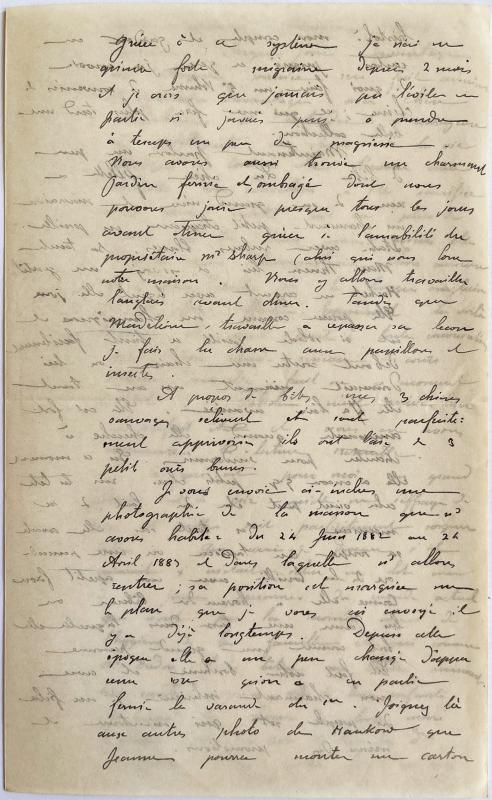 Grâce à ce système je n'ai eu
qu'une forte migraine depuis 2 mois
et je crois que jamais
partie si j'avais pensé à prendre
à temps un peu de magnésie
Nous avons aussi trouvé un charmant
jardin fermé et ombragé dont nous
pouvons jouir presque tous les jours
avant dîner grâce à l'amabilité du
propriétaire Mr Sharp celui qui nous loue
notre maison. Nous y allons travailler
l'anglais avant dîner. Tandis que
Madeleine travaille a repasser sa leçon
je fais la chasse aux papillons et
insectes.
A propos de bêtes mes 3 chiens
sauvages et sont parfaite-
ment apprivoisés ils ont l'air de 3
petit ours bruns.
Je vous envoie ci-inclus une
photographie de la maison que ns
avons habitée du 24 Juin 1882 au 24
Avril 1883 et dans laquelle ns allons
rentrer ; sa position est marquée sur
le plan que je vous ai envoyé il
y a déjà longtemps. Depuis cette
époque elle a un peu changé d'appa
rence vu qu'on a en partie
fermé la varande du 1er. Joignez là
aux autres photo de Hankow que
Jeanne pourra monter sur carton